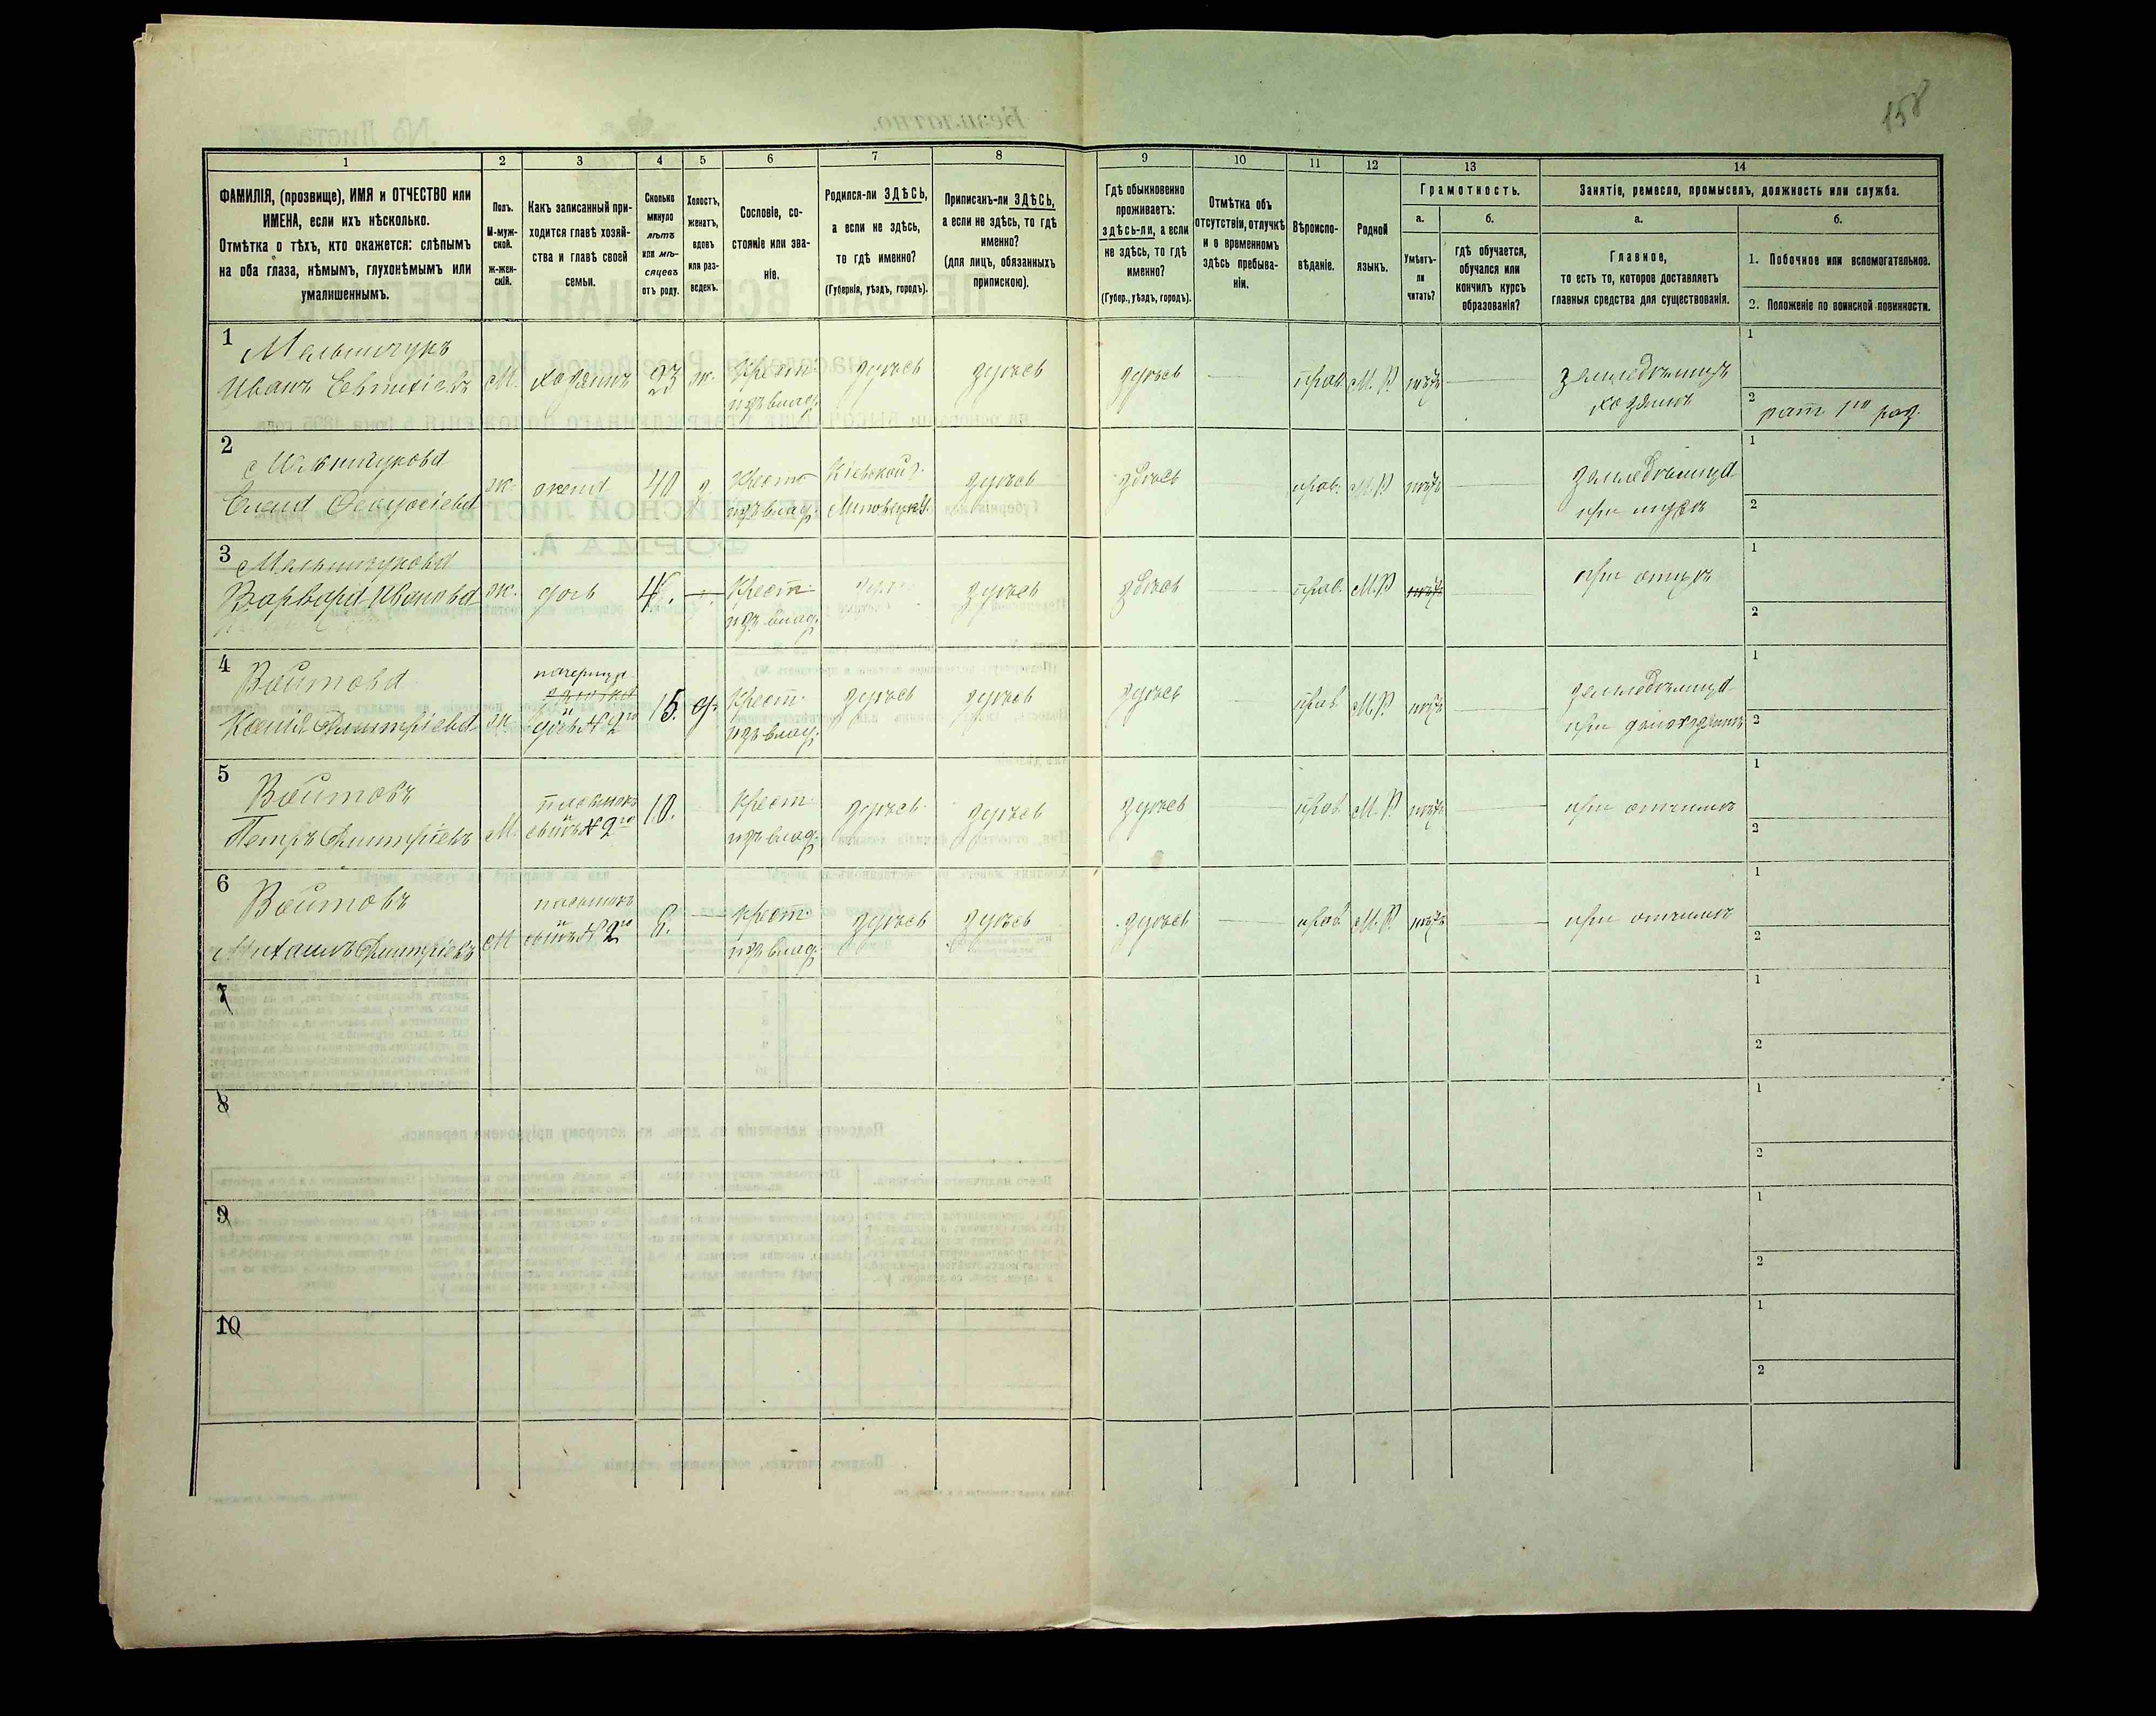 158
1
2
3
4
5
6
7
8
9
10
11
12
13
14
ФАМИЛІЯ, (прозвище), ИМЯ и ОТЧЕСТВО или
ИМЕНА, если ихъ нѣсколько.
Отмѣтка о тѣхъ, кто окажется: слѣпымъ
на оба глаза, нѣмымъ, глухонѣмымъ или
умалишеннымъ.
Полъ.
М-муж-
ской.
Ж-жен-
скій.
Какъ записанный при-
ходится главѣ хозяй-
ства и главѣ своей
семьи.
Сколько
минуло
лѣтъ
или мѣ-
сяцевъ
отъ роду.
Холостъ,
женатъ,
вдовъ
или раз-
веденъ.
Сословіе, со-
стояніе или зва-
ніе.
Родился-ли ЗДѢСЬ,
а если не здѣсь,
то гдѣ именно?
(Губернія, уѣздъ, городъ).
Приписанъ-ли ЗДѢСЬ,
а если не здѣсь, то гдѣ
именно?
(для лицъ, обязанныхъ
припискою).
Гдѣ обыкновенно
проживаетъ:
здѣсь-ли, а если
не здѣсь, то гдѣ
именно?
(Губер., уѣздъ, городъ).
Отмѣтка объ
отсутствіи, отлучкѣ
и о временномъ
здѣсь пребыва-
ніи.
Вѣроиспо-
вѣданіе.
Родной
языкъ.
Грамотность.
а.
Умѣетъ-
ли
читать?
б.
гдѣ обучается,
обучался или
кончилъ курсъ
образованія?
Занятіе, ремесло, промыселъ, должность или служба.
а.
Главное,
то есть то, которое доставляетъ
главныя средства для существованія.
б.
1. Побочное или вспомогательное.
2. Положеніе по воинской повинности.
1
Мельничукъ
Иванъ Евтихіевъ
М.
хозяинъ
23
ж.
Крест.
изъ влад.
здѣсь
здѣсь
здѣсь
прав.
М. Р.
нѣтъ
земледѣлецъ
хозяинъ
1
2
рат. 1го раз.
2
Мельничукова
Елена Феодосіева
ж.
жена
40
з.
Крест.
изъ влад.
Кіевской г.
здѣсь
здѣсь
прав.
М. Р.
нѣтъ
земледѣлица
при мужѣ
1
2
3
Мельничукова
Варвара Иванова
ж.
дочь
4.
Крест.
изъ влад.
здѣсь
здѣсь
прав.
М. Р.
нѣтъ
при отцѣ
1
2
4
Войтова
Ксенія Дмитріева
ж.
падчерица
и
дочь № 2го
15.
д.
Крест.
изъ влад.
здѣсь
здѣсь
здѣсь
прав.
М. Р.
нѣтъ
земледѣлица
1
2
5
Войтовъ
Петръ Дмитріевъ
М.
пасынокъ
и
сынъ № 2го
10.
Крест.
изъ влад.
здѣсь
здѣсь
здѣсь
прав.
М. Р.
нѣтъ
при отчимѣ
1
2
6
Войтовъ
Михаилъ Дмитріевъ
М
пасынокъ
и
сынъ № 2го
8.
Крест.
изъ влад.
здѣсь
здѣсь
здѣсь
прав.
М. Р.
нѣтъ
при отчимѣ
1
2
7
1
2
8
1
2
9
1
2
10
1
2